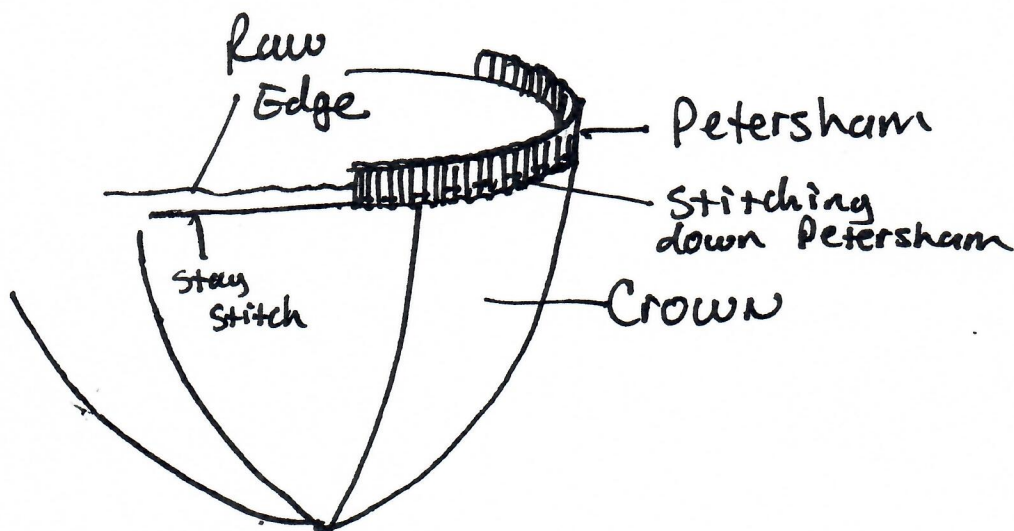 Raw
Edge
Petersham
Stitching
down Petersham
Stay
Stitch
Crown